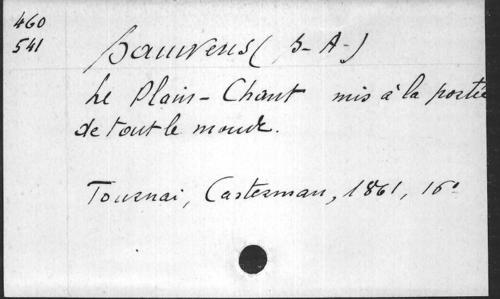 460
541
Sauwens (S-A-)
Le Plain-Chant mis à la portée
de tout le monde.
Tournai, Casterman, 1861, 16°